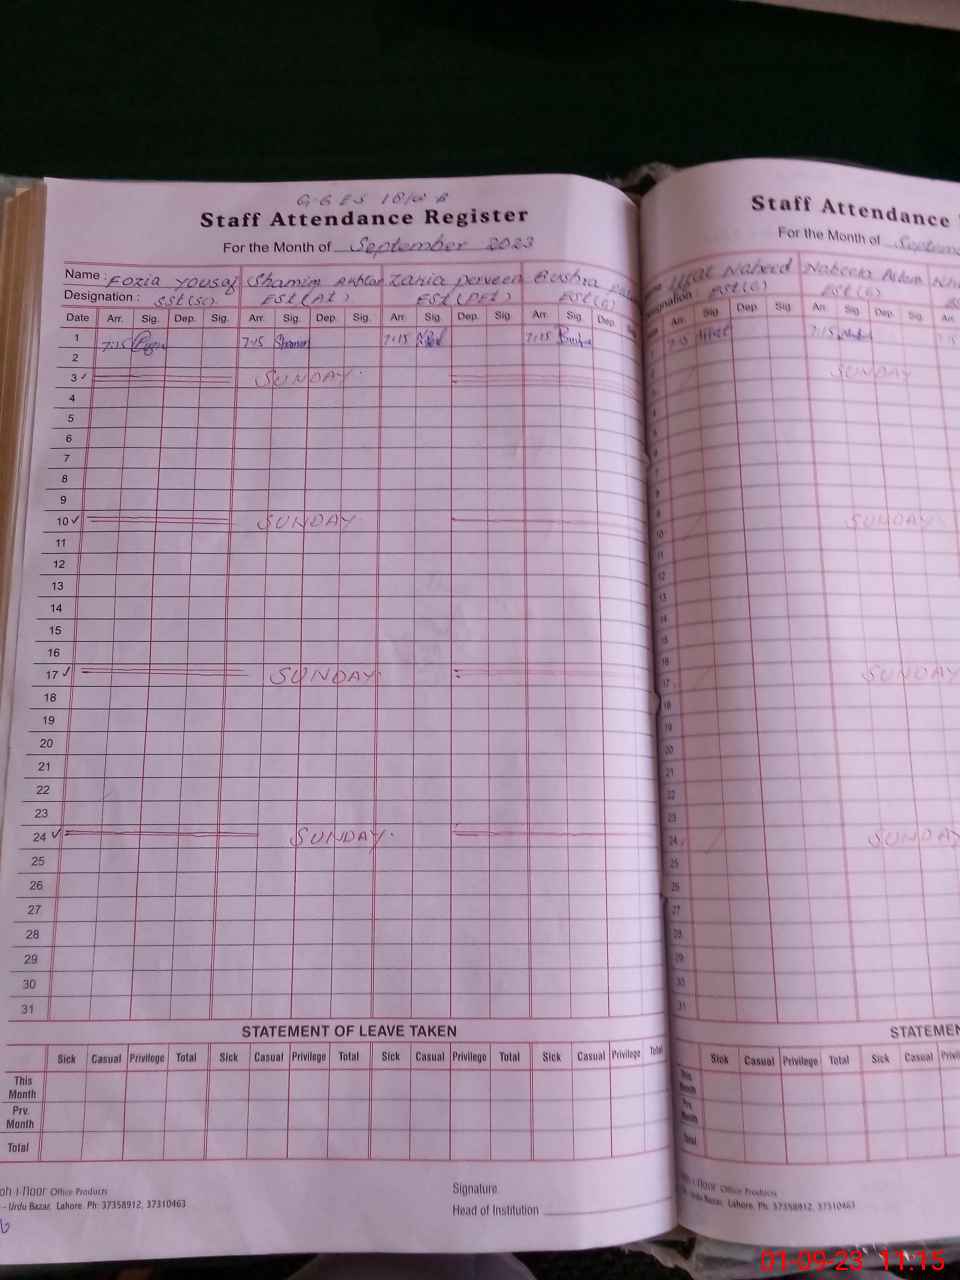 Staff Attendance Register
For the Month of September 2023
Name : Fozia Yousaf Shamim Akhtar Zahia Perveen Bushra
Designation : SST(Sc) EST(AT) EST(PET) EST(G)
Date Arr. Sig. Dep. Sig. Arr. Sig. Dep. Sig. Arr. Sig. Dep. Sig. Arr. Sig. Dep. Sig.
1 7:15 7:15 7:15 7:15
2
3 SUNDAY
4
5
6
7
8
9
10 SUNDAY
11
12
13
14
15
16
17 SUNDAY
18
19
20
21
22
23
24 SUNDAY
25
26
27
28
29
30
31
STATEMENT OF LEAVE TAKEN
Sick Casual Privilege Total Sick Casual Privilege Total Sick Casual Privilege Total Sick Casual Privilege Total
This Month
Prv. Month
Total
Office Products
Urdu Bazar, Lahore. Ph: 37358912, 37310463
Signature
Head of Institution
Staff Attendance
For the Month of
Naheed Nabeela Aslam
EST(G) EST(G)
Arr. Sig. Dep. Sig. Arr. Sig. Dep. Sig.
7:15 7:15
SUNDAY
9
10 SUNDAY
11
12
13
14
15
16
17 SUNDAY
18
19
20
21
22
23
24 SUNDAY
25
26
27
28
29
30
31
Sick Casual Privilege Total Sick Casual
Office Products
Urdu Bazar, Lahore. Ph. 37358912, 37310463
01-09-23 11:15